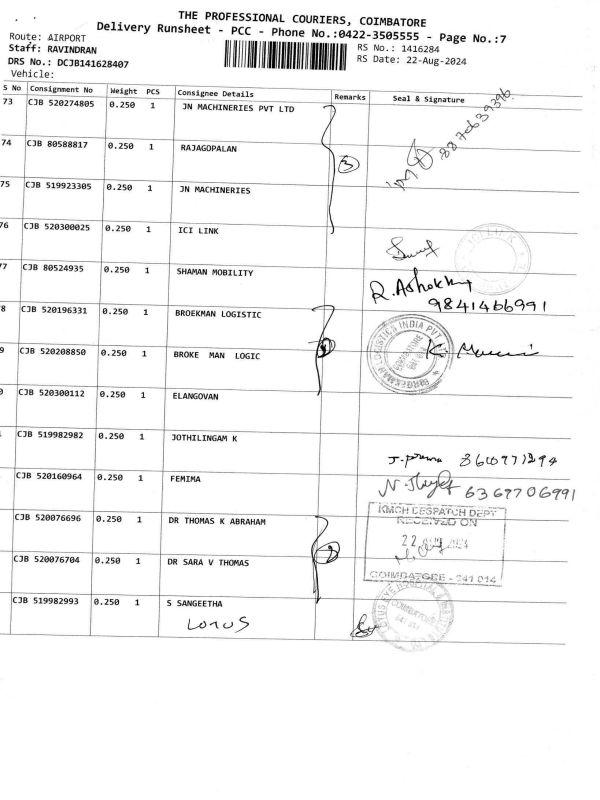 THE PROFESSIONAL COURIERS, COIMBATORE
Delivery Runsheet - PCC - Phone No.:0422-3505555 - Page No.:7
Route: AIRPORT
Staff: RAVINDRAN RS No.: 1416284
DRS No.: DCJB141628407 RS Date: 22-Aug-2024
Vehicle:
S No Consignment No Weight PCS Consignee Details Remarks Seal & Signature
73 CJB 520274805 0.250 1 JN MACHINERIES PVT LTD
74 CJB 80588817 0.250 1 RAJAGOPALAN 3
75 CJB 519923305 0.250 1 JN MACHINERIES
76 CJB 520300025 0.250 1 ICI LINK
77 CJB 80524935 0.250 1 SHAMAN MOBILITY
9841466991
8 CJB 520196331 0.250 1 BROEKMAN LOGISTIC
9 CJB 520208850 0.250 1 BROKE MAN LOGIC
0 CJB 520300112 0.250 1 ELANGOVAN
CJB 519982982 0.250 1 JOTHILINGAM K
CJB 520160964 0.250 1 FEMIMA 63697706991
CJB 520076696 0.250 1 DR THOMAS K ABRAHAM
KMCH DESPATCH DEPT
RECEIVED ON
CJB 520076704 0.250 1 DR SARA V THOMAS
COIMBATORE - 641 014
CJB 519982993 0.250 1 S SANGEETHA
LOTUS